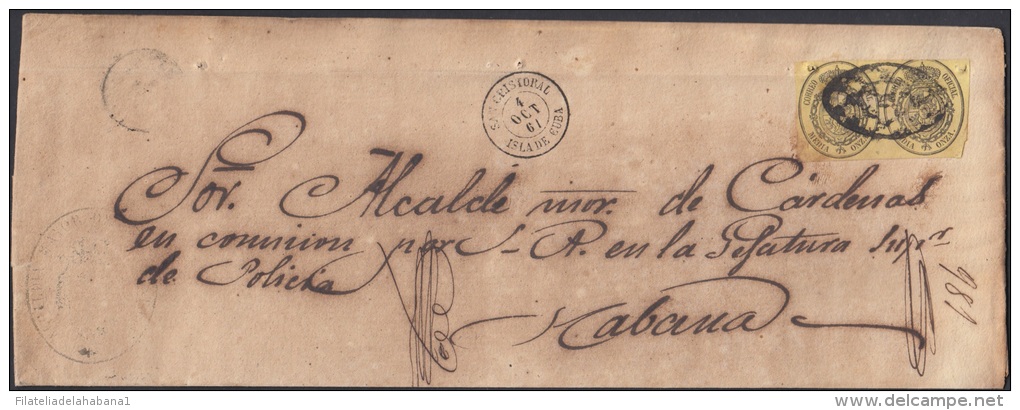 SAN CRISTOBAL
4
OCT
61
ISLA DE CUBA
CORREO OFICIAL
MEDIA ONZA.
MEDIA ONZA.
Sor. Alcalde mor. de Cárdenas
en comision por S. A. en la Gefatura supor
de Policia
Habana
981
Filateliadelahabana1
delcampe.net